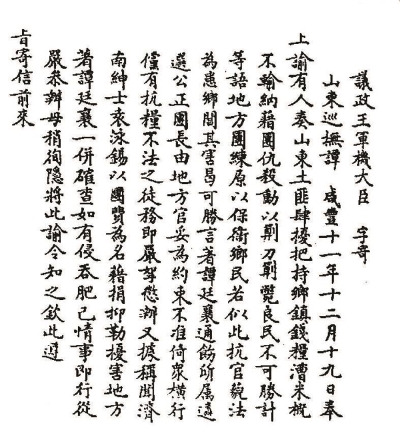 議政王軍機大臣　字寄
山東巡撫譚　咸豐十一年十二月十九日奉
上諭有人奏山東土匪肆擾把持鄉鎮錢糧漕米概
不輸納藉團仇殺動以劓刀劓斃良民不可勝計
等語地方團練原以保衛鄉民若似此抗官藐法
為患鄉閭其害曷可勝言著譚廷襄通飭所屬遴
選公正團長由地方官妥為約束不准倚眾橫行
僅有抗糧不法之徒務即嚴拏懲辦又據稱聞濟
南紳士袁泳錫以團費為名藉捐抑勒擾害地方
著譚廷襄一併確查如有侵吞肥己情事即行從
嚴參辦毋稍徇隱將此諭令知之欽此遵
旨寄信前來